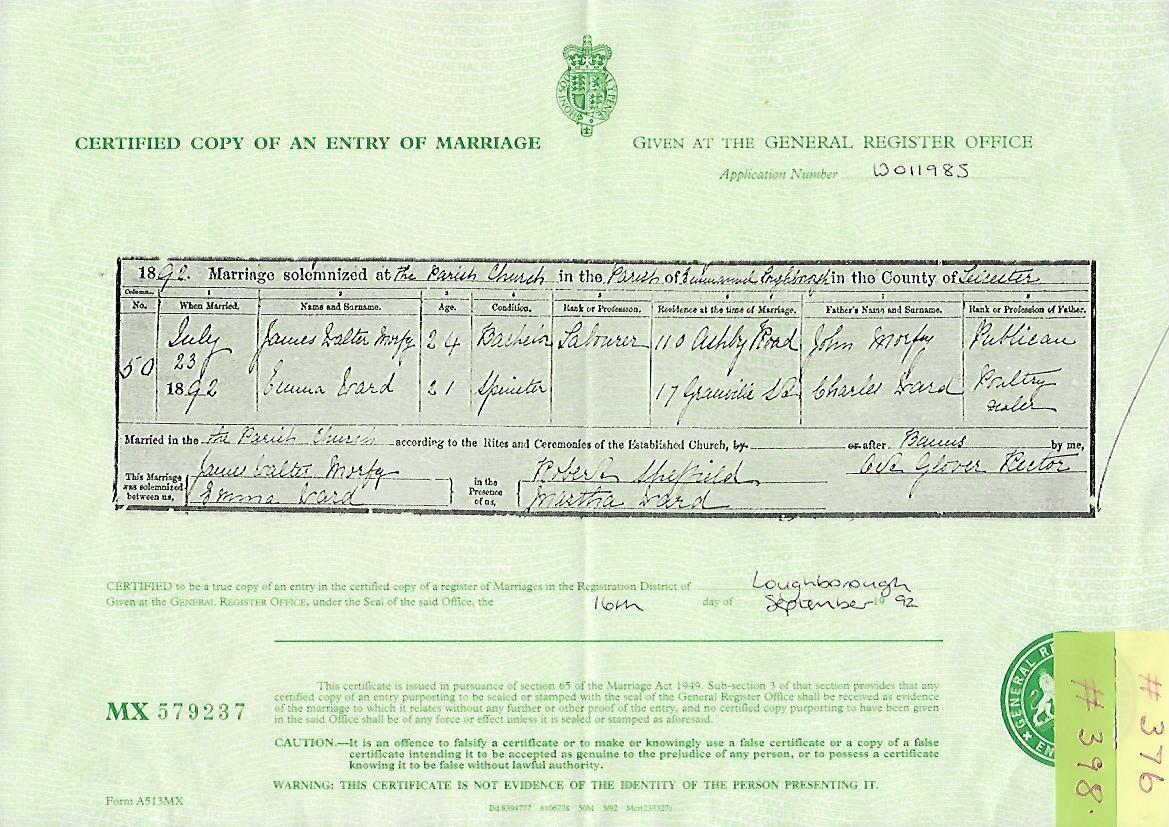 CERTIFIED COPY OF AN ENTRY OF MARRIAGE
GIVEN AT THE GENERAL REGISTER OFFICE
Application Number W011985
1892. Marriage solemnized at the Parish Church in the Parish of Loughborough in the County of Leicester
Columns:— 1 2 3 4 5 6 7 8
No. When Married. Name and Surname. Age. Condition. Rank or Profession. Residence at the time of Marriage. Father's Name and Surname. Rank or Profession of Father.
50 July 23 1892
James Walter Morfy 24 Bachelor Labourer 110 Ashby Road John Morfy Publican
Emma Ward 21 Spinster 17 Granville St Charles Ward Poultry dealer
Married in the the Parish Church according to the Rites and Ceremonies of the Established Church, by or after Banns by me,
Glover Rector
This Marriage was solemnized between us,
James Walter Morfy
Emma Ward
in the Presence of us,
Robert Sheffield
Martha Ward
CERTIFIED to be a true copy of an entry in the certified copy of a register of Marriages in the Registration District of Loughborough
Given at the GENERAL REGISTER OFFICE, under the Seal of the said Office, the 16th day of September 19 92
MX 579237
This certificate is issued in pursuance of section 65 of the Marriage Act 1949. Sub-section 3 of that section provides that any
certified copy of an entry purporting to be sealed or stamped with the seal of the General Register Office shall be received as evidence
of the marriage to which it relates without any further or other proof of the entry, and no certified copy purporting to have been given
in the said Office shall be of any force or effect unless it is sealed or stamped as aforesaid.
CAUTION.—It is an offence to falsify a certificate or to make or knowingly use a false certificate or a copy of a false
certificate intending it to be accepted as genuine to the prejudice of any person, or to possess a certificate
knowing it to be false without lawful authority.
WARNING: THIS CERTIFICATE IS NOT EVIDENCE OF THE IDENTITY OF THE PERSON PRESENTING IT.
Form A513MX
GENERAL RE
EN
# 398.
# 376